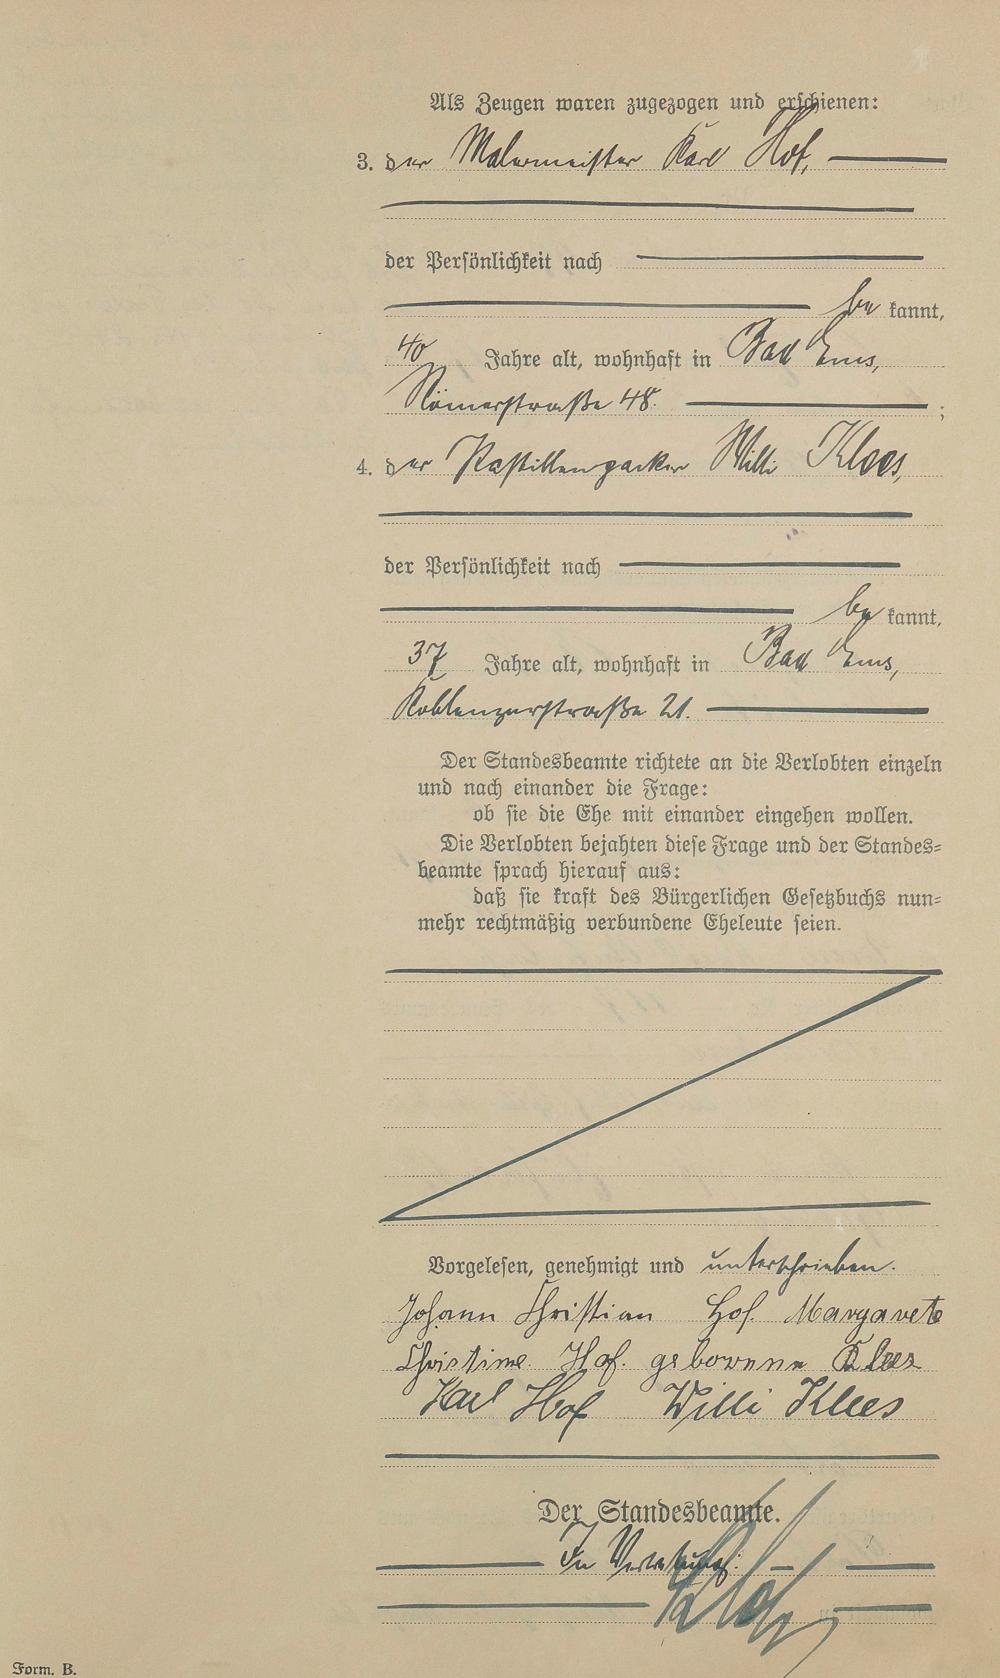 Als Zeugen waren zugezogen und erschienen:
3. der Malermeister Karl Hof,
der Persönlichkeit nach
be kannt,
40 Jahre alt, wohnhaft in Bad Ems,
Römerstraße 48. ;
4. der Pastillenpacker Willi Klees,
der Persönlichkeit nach
be kannt,
37 Jahre alt, wohnhaft in Bad Ems,
Koblenzerstraße 21.
Der Standesbeamte richtete an die Verlobten einzeln
und nach einander die Frage:
ob sie die Ehe mit einander eingehen wollen.
Die Verlobten bejahten diese Frage und der Standes=
beamte sprach hierauf aus:
daß sie kraft des Bürgerlichen Gesetzbuchs nun=
mehr rechtmäßig verbundene Eheleute seien.
Vorgelesen, genehmigt und unterschrieben.
Johann Christian Hof. Margarete
Christine Hof. geborene Klees
Karl Hof Willi Klees
Der Standesbeamte.
In Vertretung:
Form. B.